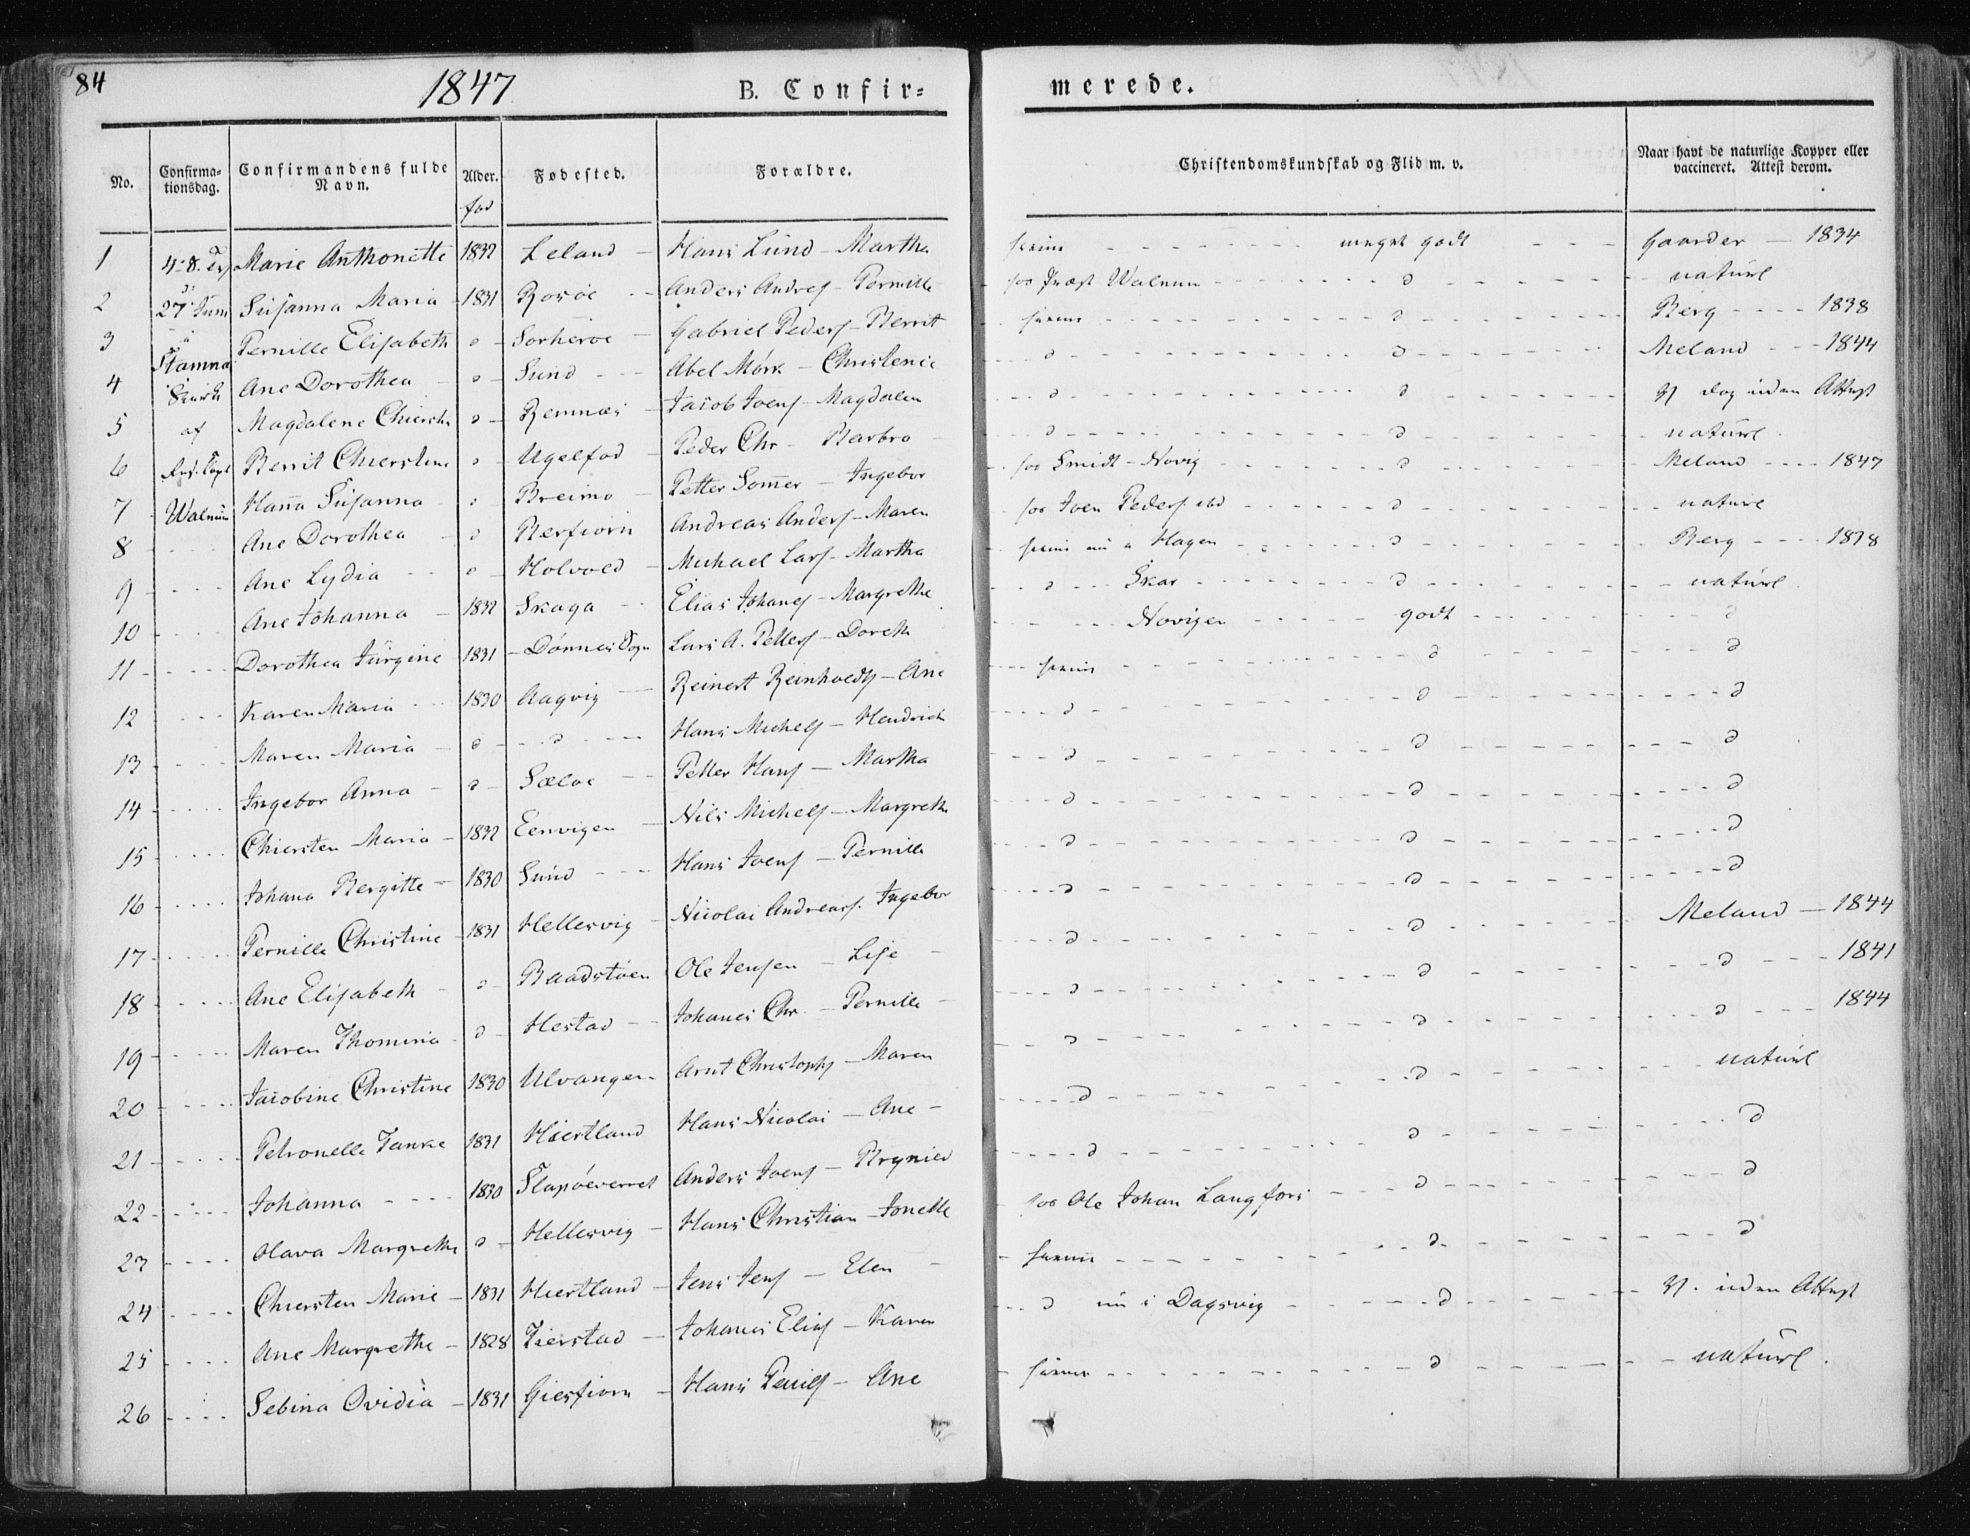 84 1847 B. Confir= merede.
No. Confirma-tionsdag. Confirmandens fulde Navn. Alder. Fødested. Forældre. Christendomskundskab og Flid m. v. Naar havt de naturlige Kopper eller vaccineret. Attest derom.
1 Marie Anthonette 1832 Leland Hans Lund - Martha meget godt Gaarder 1834
2 27 Juni Susanna Maria 1831 Rosøe Anders Anders - Pernille Præst Walnum d naturl
3 Pernille Elisabeth d Sorherøe Gabriel Peders - Berrit d Berg 1838
4 Stamnæs Ane Dorothea d Sund Abel Mørk - Christence d d Meland 1844
5 af Magdalene Chierst d Remnæs Jacob Joens - Magdalen d d Dog uden Attest
6 Berrit Chierstine d Ugelfod Peder Chr - Barbro d d naturl
7 Walnum Hanna Susanna d Breimo Petter Sommer - Ingebor Smidt - Novig d Meland 1847
8 Ane Dorothea d Bærfiorn Andreas Anders - Maren Joen Peders d naturl
9 Ane Lydia d Holvold Michael Lars - Martha Hagen d Berg 1838
10 Ane Johanna 1832 Skaga Elias Johans - Margrethe d Skar d naturl
11 Dorothea Jürgine 1831 Dønnes Sogn Lars A. Petters - Doreth Novigen godt d
12 Karen Maria 1830 Aagvig Reinert Reinholdts - Ane d d
13 Maren Maria d d Hans Michels - Hendrich d d d
14 Ingebor Anna d Sæløe Petter Hans - Martha d d d
15 Chiersten Maria 1832 Eenvigen Nils Michels - Margreth d d d
16 Johana Bergitte 1830 Sund Hans Joens - Pernille d d d
17 Pernille Christine 1831 Hellesvig Nicolai Andreas. Ingebor d d d
18 Ane Elisabeth d Baadstøen Ole Jensen - Lise d d Meland 1844
19 Maren Thomina d Hestad Johanes Chr. - Pernille d d d 1841
20 Jacobine Christine 1830 Ulvangen Arnt Christophs - Maren d d d 1844
21 Petronelle Tanke 1831 Hiertland Hans Nicolai - Ane d d naturl
22 Johanna 1830 Slapøeverret Anders Joens - Brynild d d d
23 Olava Margrethe d Hellesvig Hans Christian - Jonette Ole Johan Langfors d d
24 Chiersten Marie 1831 Hiertland Jens Jens - Elen d d
25 Ane Margrethe 1828 Tierstad Johanes Elias - Karen d nu i Dagsvig d uden Attest
26 Sebina Ovidia 1831 Giesfiorn Hans Peniels - Ane d naturl.